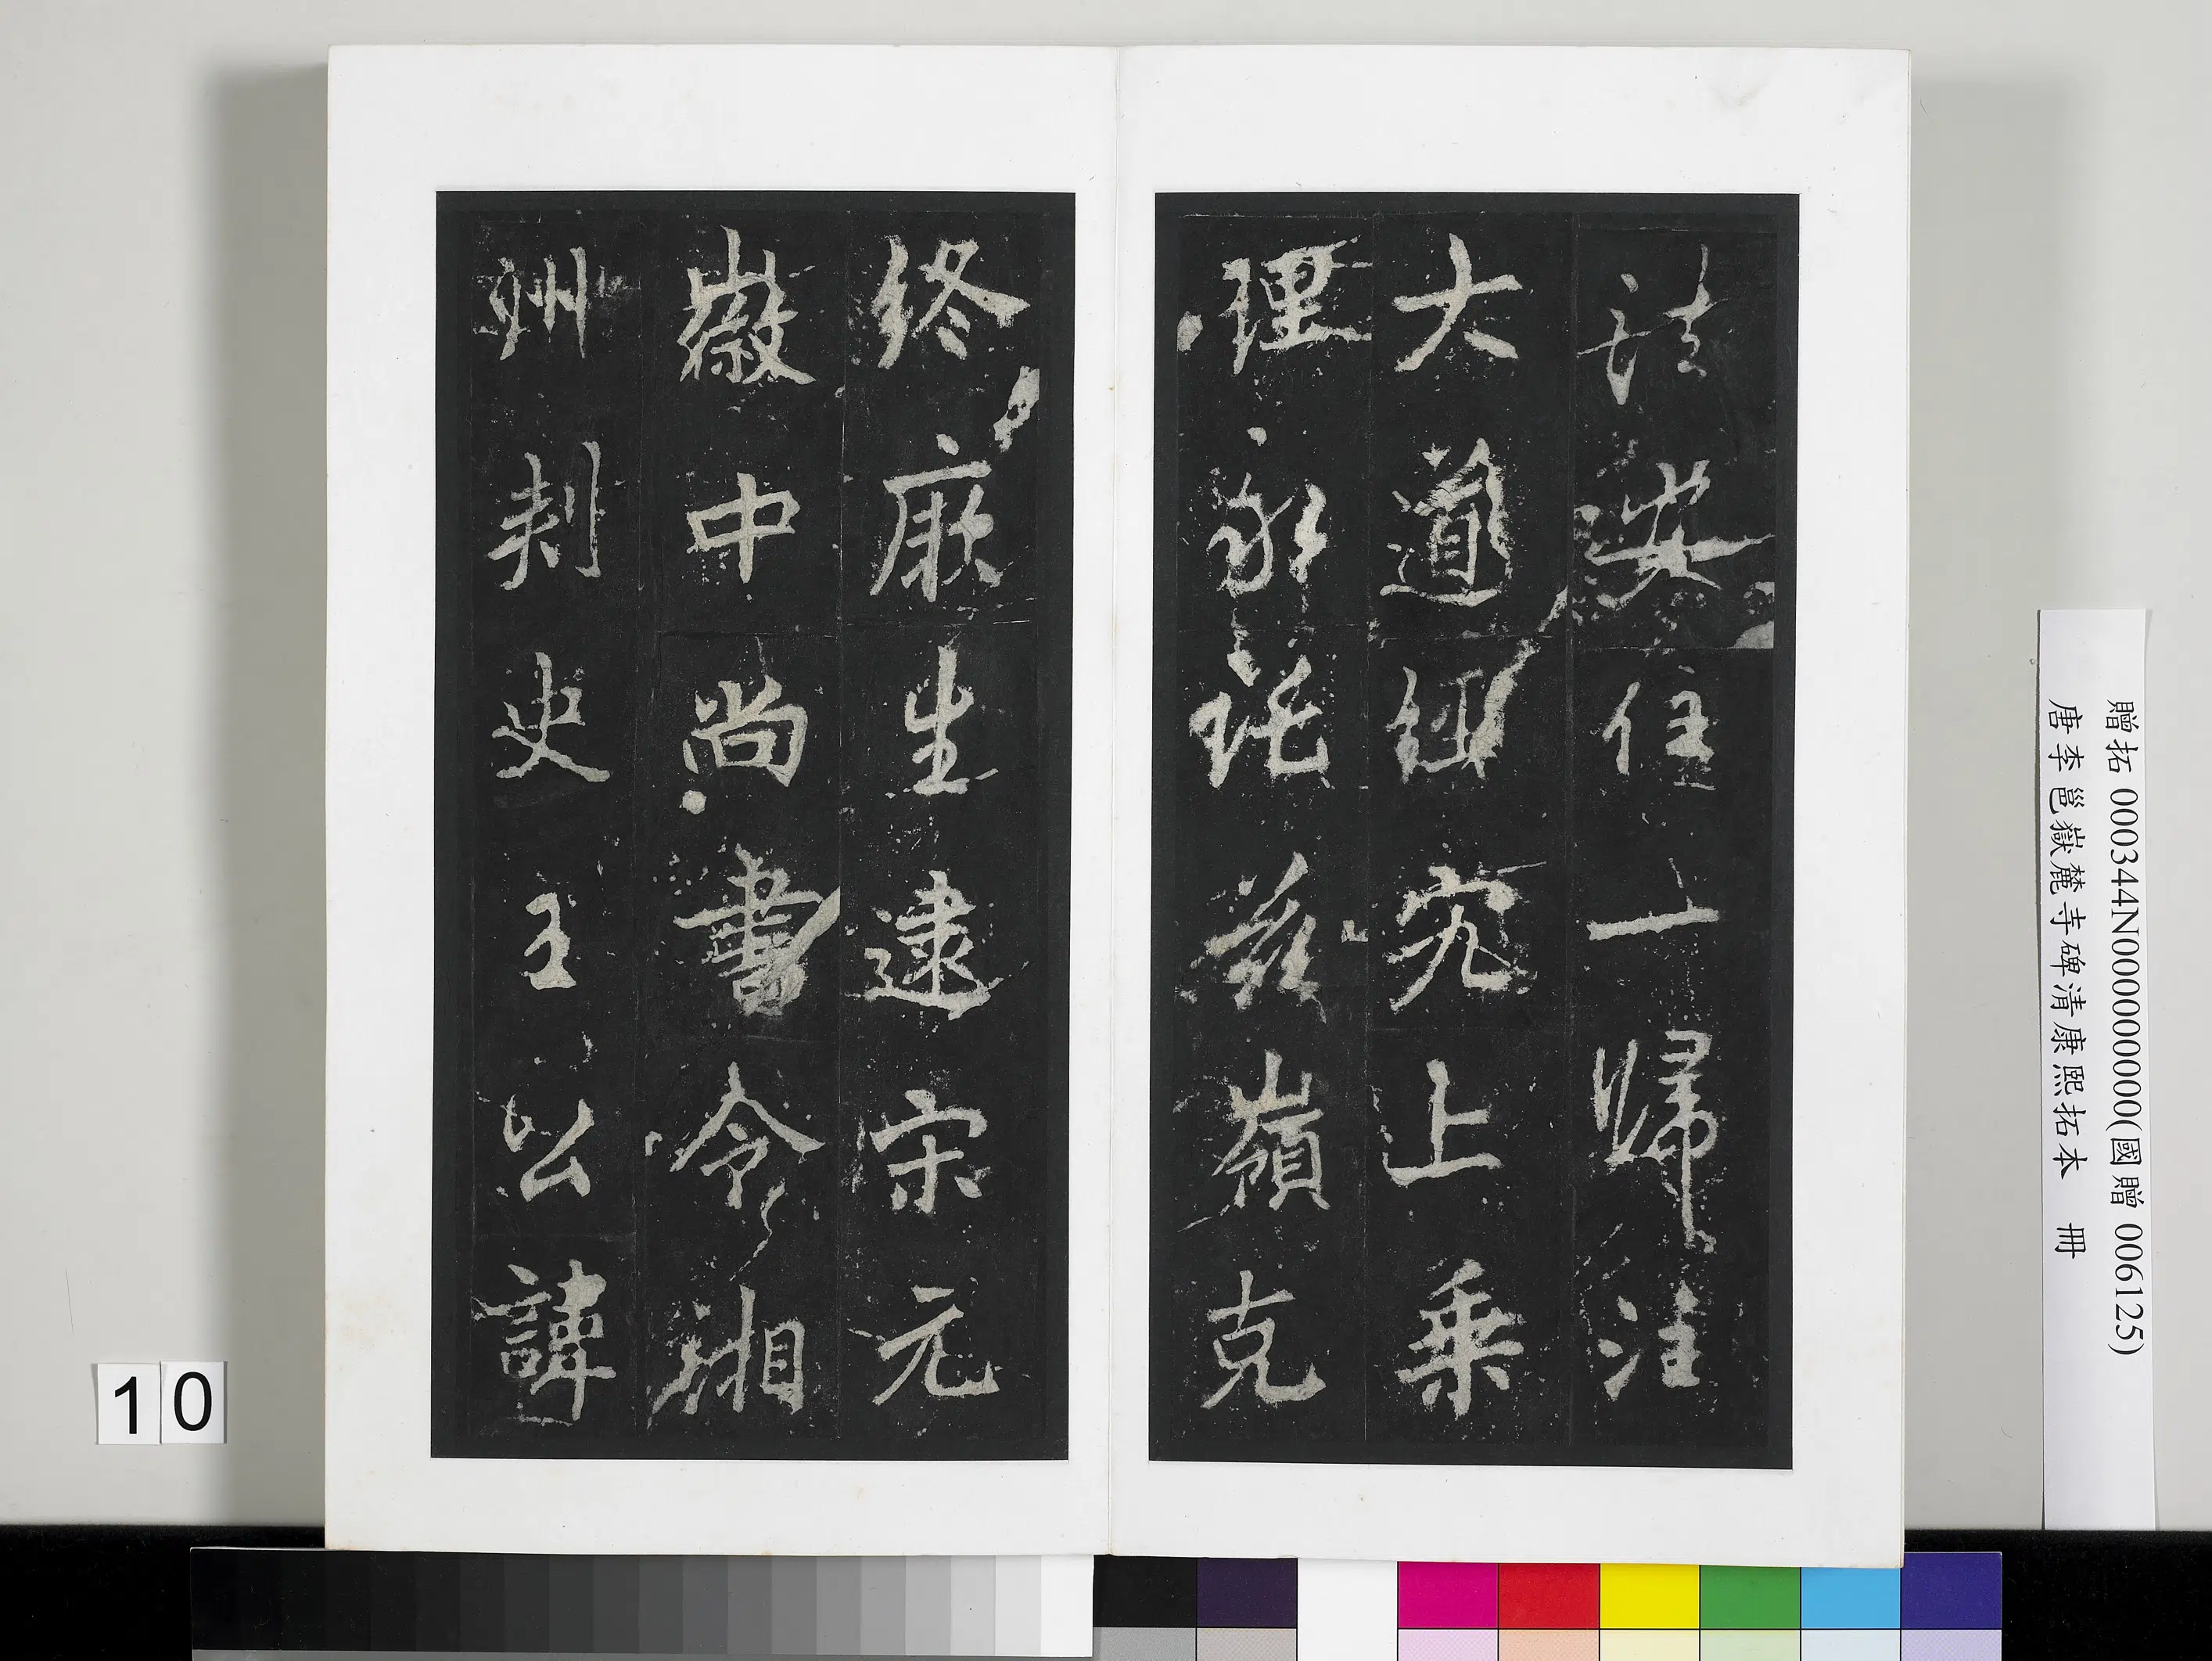 法住一歸注
大道經究上乘
理永託茲嶺克
終厥生逮宋元
徽中尚書令湘
州刺史王公諱
贈拓 000344N000000000(國贈 006125)
唐李邕嶽麓寺碑清康熙拓本 冊
10